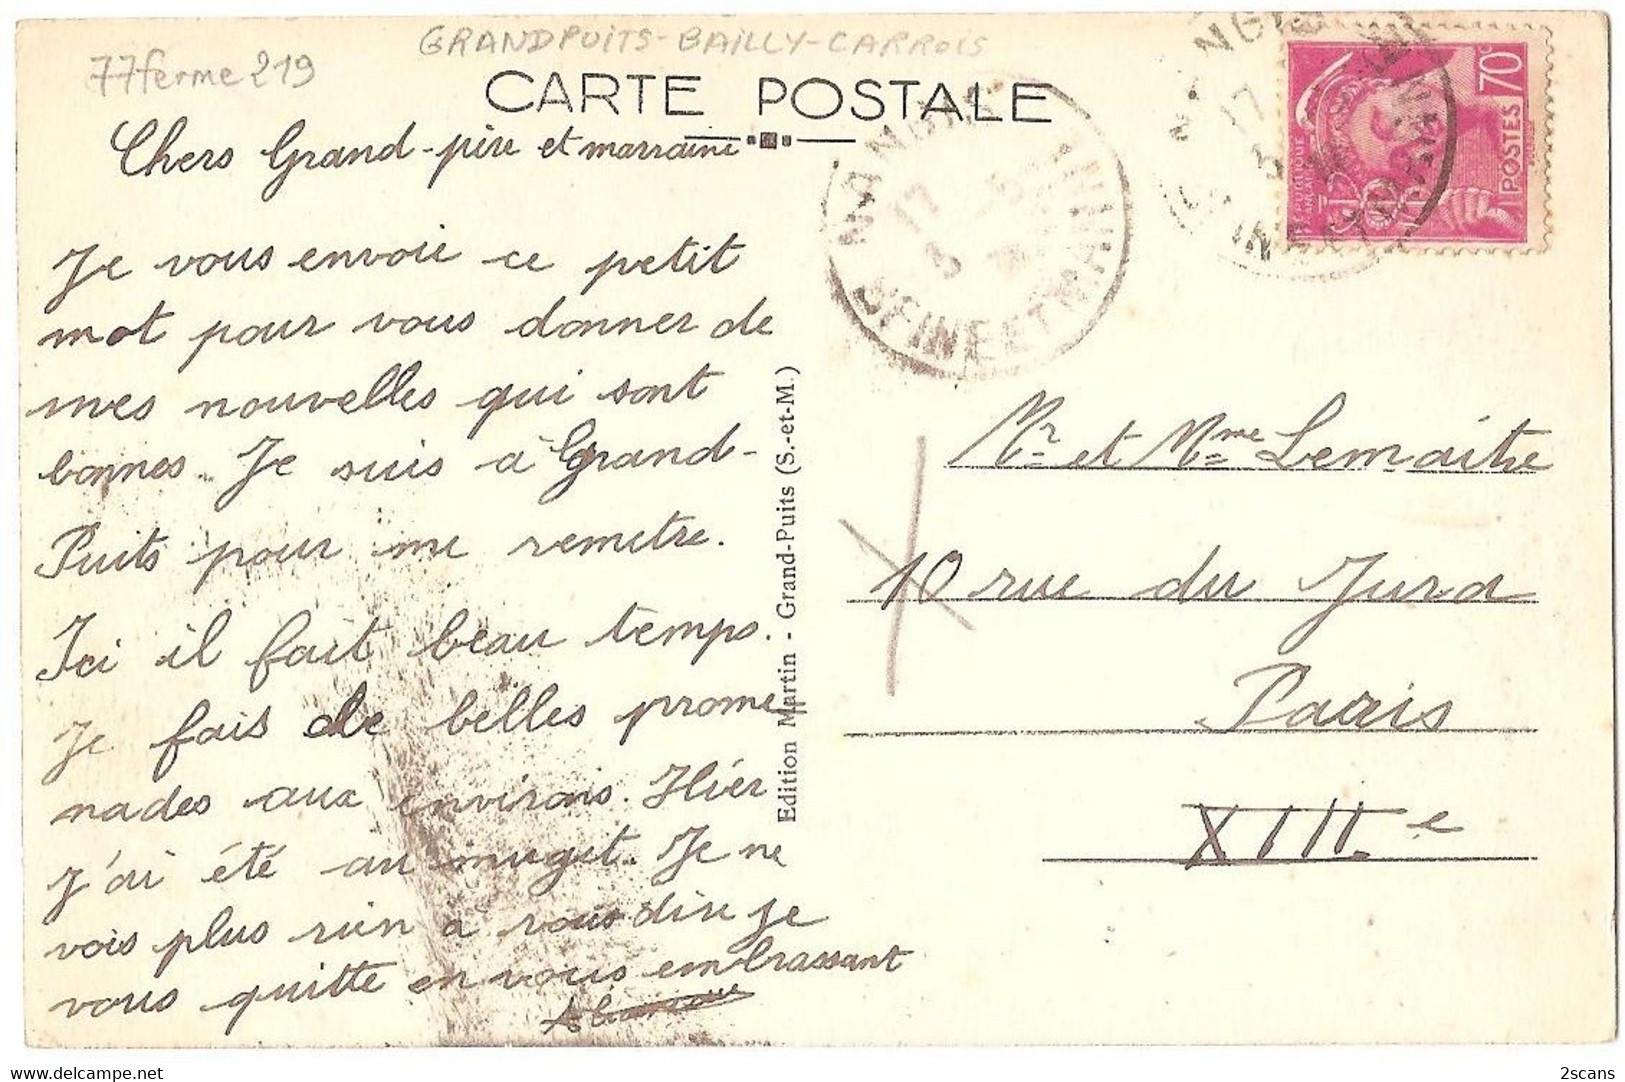 GRANDPUITS-BAILLY-CARROIS
77ferme219
CARTE POSTALE
Chers Grand-père et marraine
Je vous envoie ce petit
mot pour vous donner de
mes nouvelles qui sont
bonnes. Je suis à Grand-
Puits pour me remetre.
Ici il fait beau temps.
Je fais de belles prome
nades aux environs. Hier
j'ai été au muget. Je ne
vois plus rien à vous dire je
vous quitte en vous embrassant
Edition Martin - Grand-Puits (S.-et-M.)
NANGIS
17
3
SEINE ET MARNE
POSTES 70c
Mr et Mme Lemaitre
10 rue du Jura
Paris
XIIIe
2scans